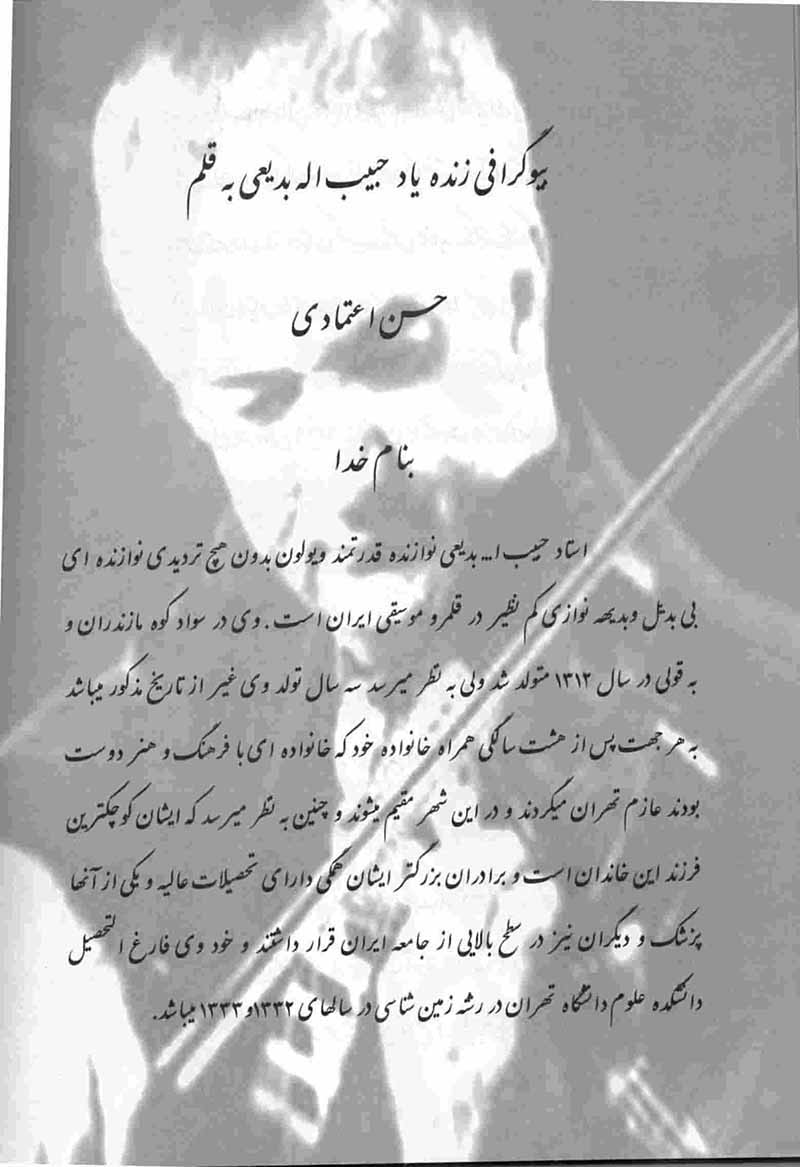 بیوگرافی زنده یاد حبیب اله بدیعی به قلم
حسن اعتمادی
بنام خدا
استاد حبیب ا... بدیعی نوازنده قدرتمند ویولون بدون هیچ تردیدی نوازنده ای
بی بدیل وبدیهه نوازی کم نظیر در قلمرو موسیقی ایران است . وی در سواد کوه مازندران و
به قولی در سال ۱۳۱۲ متولد شد ولی به نظر میرسد سه سال تولد وی غیر از تاریخ مذکور میباشد
به هر جهت پس از هشت سالگی همراه خانواده خود که خانواده ای با فرهنگ و هنر دوست
بودند عازم تهران میگردند و در این شهر مقیم میشوند و چنین به نظر میرسد که ایشان کوچکترین
فرزند این خاندان است و برادران بزرگتر ایشان همگی دارای تحصیلات عالیه و یکی از آنها
پزشک و دیگران نیز در سطح بالایی از جامعه ایران قرار داشتند و خود وی فارغ التحصیل
دانشکده علوم دانشگاه تهران در رشه زمین شناسی در سالهای ۱۳۳۲و۱۳۳۳ میباشد.